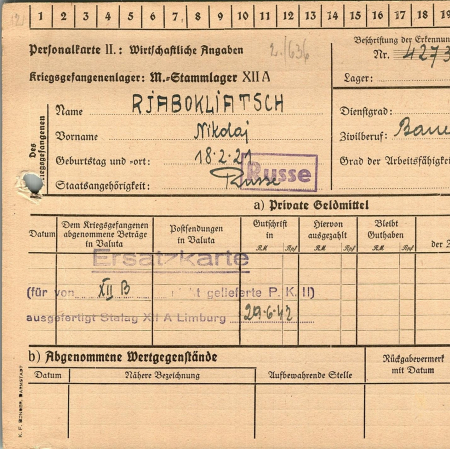 1 2 3 4 5 6 7 8 9 10 11 12 13 14 15 16 17 18 19
Personalkarte II.: Wirtschaftliche Angaben
2./636
Beschriftung der Erkennun
Nr. 4273
Kriegsgefangenenlager: M.-Stammlager XII A
Lager:
Des Kriegsgefangenen
Name RJABOKLJATSCH
Dienstgrad:
Vorname Nikolaj
Zivilberuf: Baue
Geburtstag und -ort: 18.2.21
Grad der Arbeitsfähigkeit
Staatsangehörigkeit: Russe
Russe
a) Private Geldmittel
Datum
Dem Kriegsgefangenen abgenommene Beträge in Valuta
Postsendungen in Valuta
Gutschrift in
RM Rpf
Hiervon ausgezahlt
RM Rpf
Bleibt Guthaben
RM Rpf
der Z
Ersatzkarte
(für von XII B nicht gelieferte P. K. II)
ausgefertigt Stalag XII A Limburg 29.6.42
b) Abgenommene Wertgegenstände
Rückgabevermerk mit Datum
Datum
Nähere Bezeichnung
Aufbewahrende Stelle